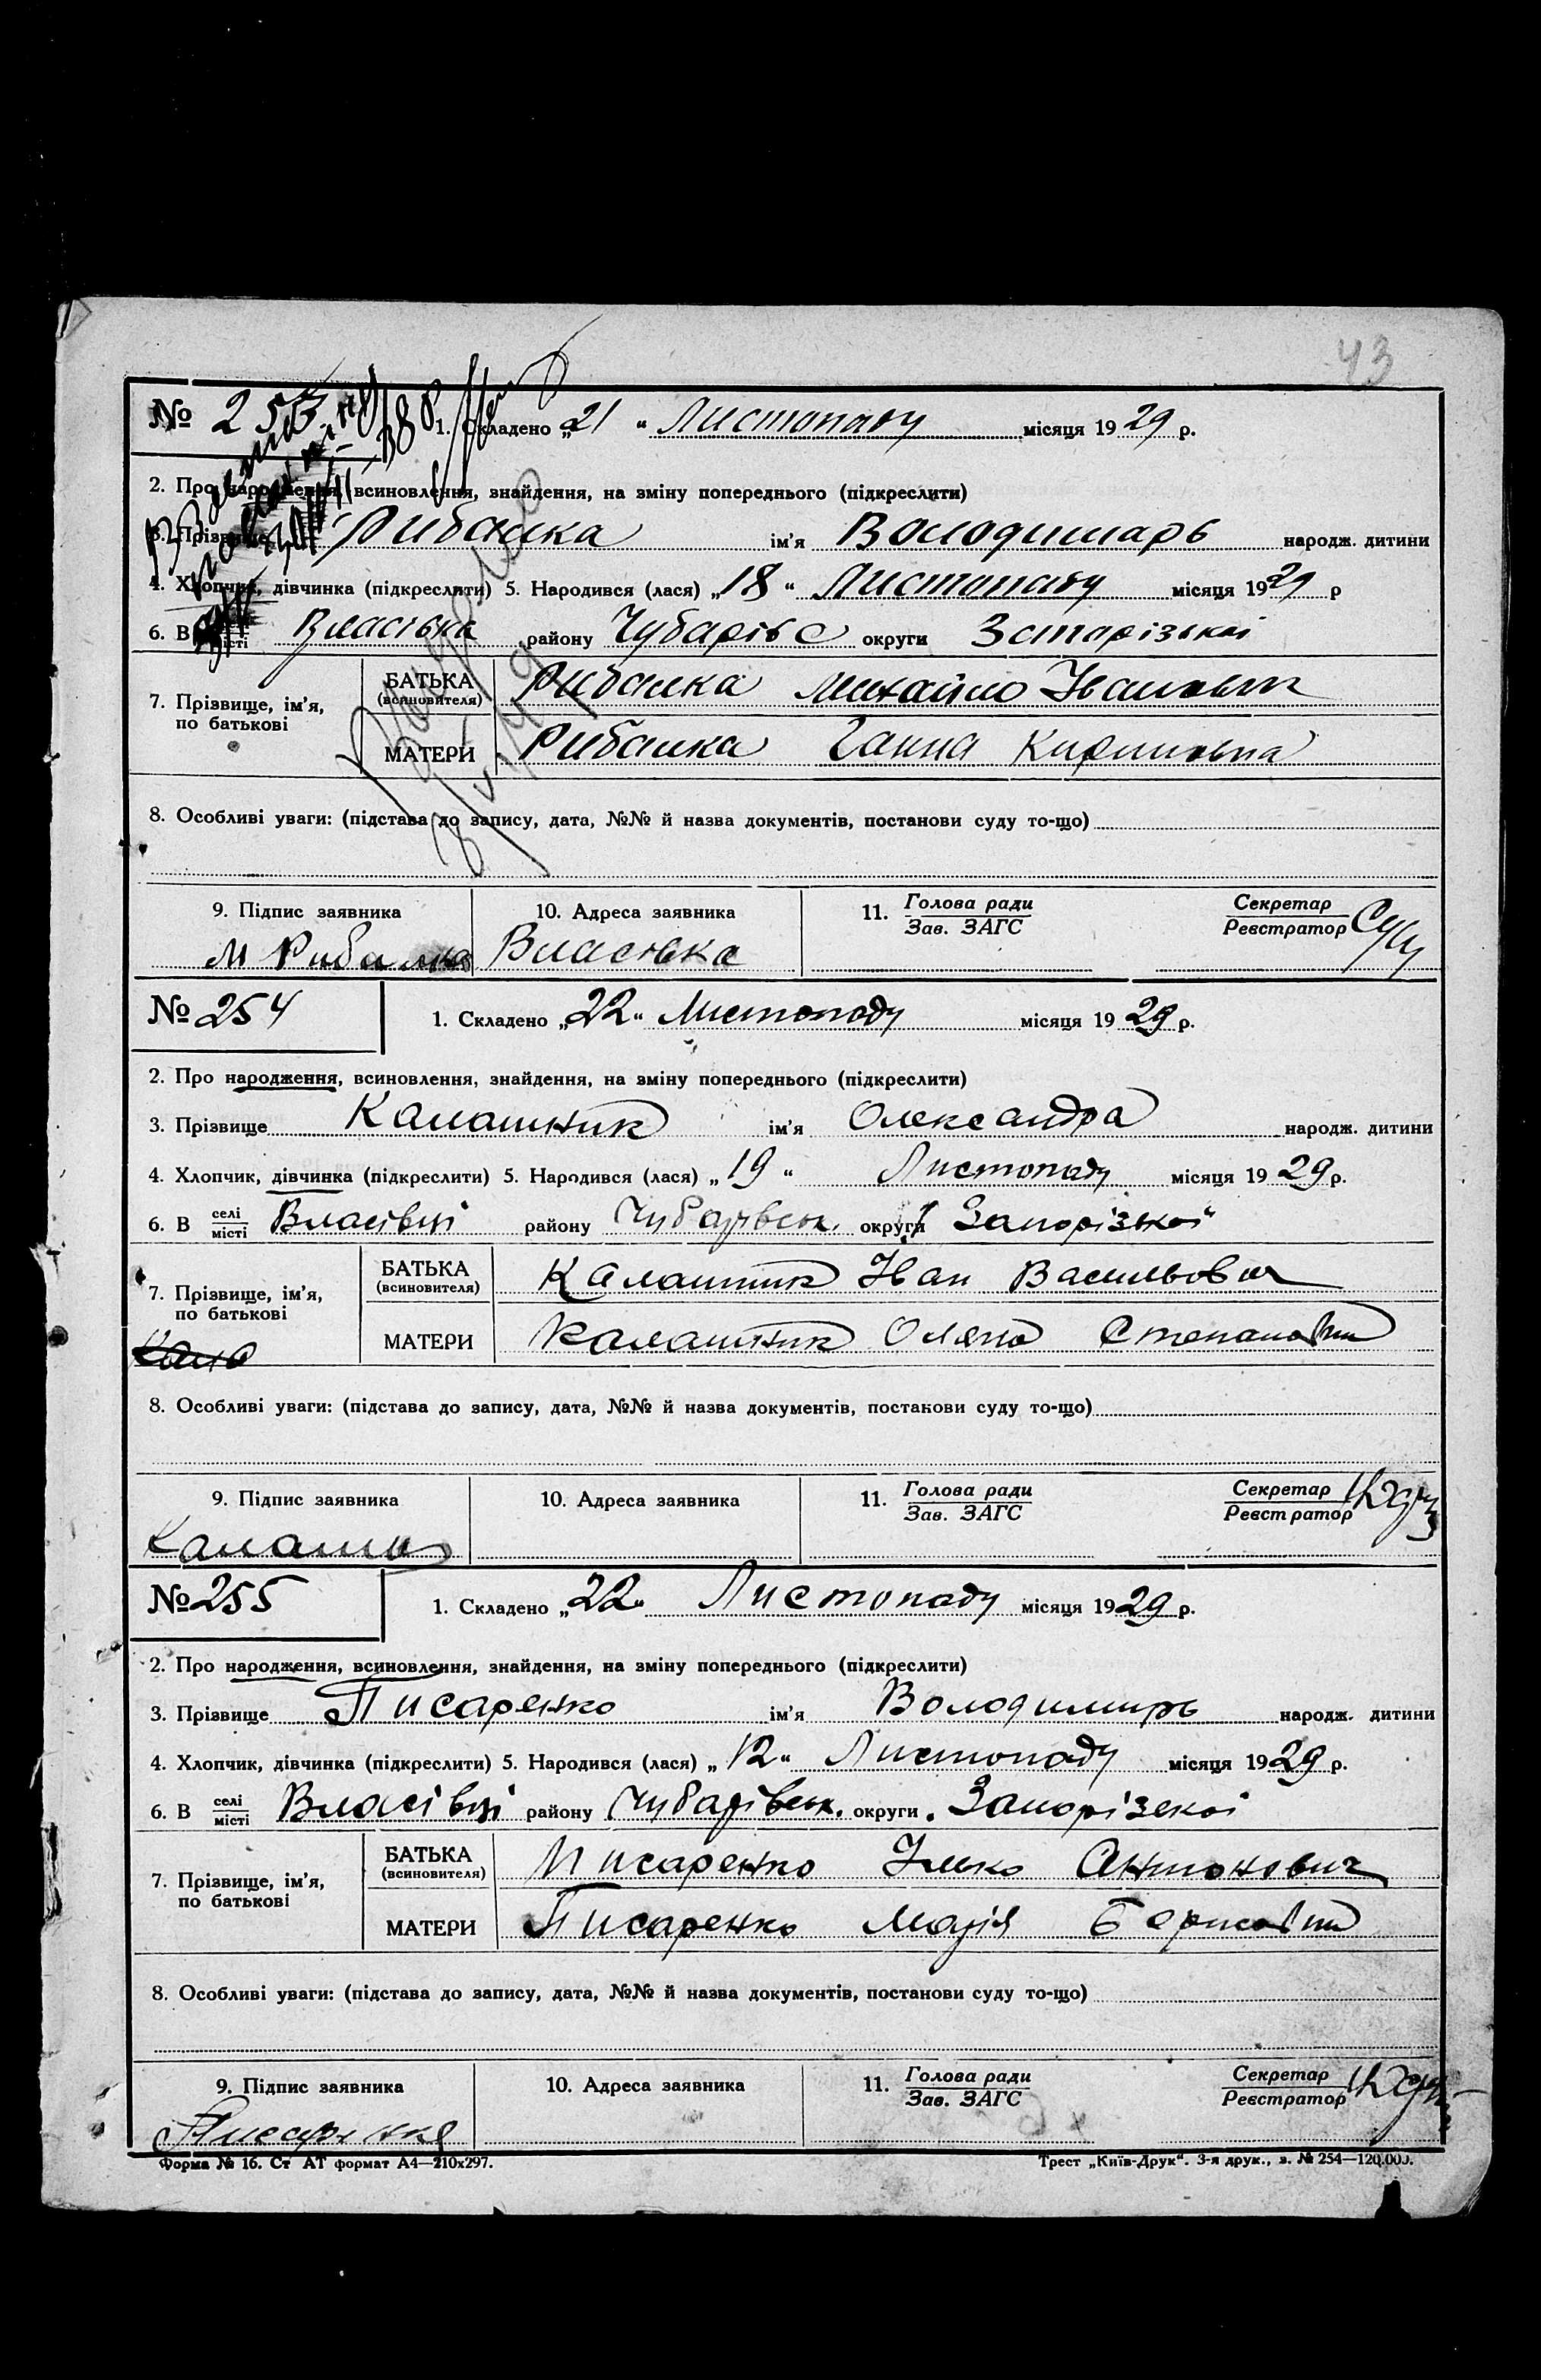 43
№ 253 1. Складено „21“ Листопаду місяця 1929 р.
2. Про народження, всиновлення, знайдення, на зміну попереднього (підкреслити)
3. Прізвище Рибалка ім'я Володимарь народж. дитини
4. Хлопчик, дівчинка (підкреслити) 5. Народився (лася) „18“ Листопаду місяця 1929 р
6. В селі місті Власівка району Чубарівс округи Запорізькоі
7. Прізвище, ім'я, по батькові БАТЬКА (всиновителя) Рибалка Михайло Іванович
МАТЕРИ Рибалка Ганна Кириловна
8. Особливі уваги: (підстава до запису, дата, №№ й назва документів, постанови суду то-що)
9. Підпис заявника 10. Адреса заявника 11. Голова ради Зав. ЗАГС Секретар Реєстратор
М Рибалка Власівка
№ 254 1. Складено „22“ Листопаду місяця 1929 р.
2. Про народження, всиновлення, знайдення, на зміну попереднього (підкреслити)
3. Прізвище Калашник ім'я Олександра народж. дитини
4. Хлопчик, дівчинка (підкреслити) 5. Народився (лася) „19“ Листопаду місяця 1929 р.
6. В селі місті Власівці району Чубарівськ. округи Запорізькоі
7. Прізвище, ім'я, по батькові БАТЬКА (всиновителя) Калашник Іван Васильович
МАТЕРИ Калашник Оляна Степановна
8. Особливі уваги: (підстава до запису, дата, №№ й назва документів, постанови суду то-що)
9. Підпис заявника 10. Адреса заявника 11. Голова ради Зав. ЗАГС Секретар Реєстратор
№ 255 1. Складено „22“ Листопаду місяця 1929 р.
2. Про народження, всиновлення, знайдення, на зміну попереднього (підкреслити)
3. Прізвище Писаренко ім'я Володимирь народж. дитини
4. Хлопчик, дівчинка (підкреслити) 5. Народився (лася) „12“ Листопаду місяця 1929 р.
6. В селі місті Власівці району Чубарівськ. округи Запорізскоі
7. Прізвище, ім'я, по батькові БАТЬКА (всиновителя) Писаренко Ілько Антонович
МАТЕРИ Писаренко Марія Борисовна
8. Особливі уваги: (підстава до запису, дата, №№ й назва документів, постанови суду то-що)
9. Підпис заявника 10. Адреса заявника 11. Голова ради Зав. ЗАГС Секретар Реєстратор
Форма № 16. Ст АТ формат А4—210х297. Трест „Київ-Друк“. 3-я друк., з. № 254—120.000.